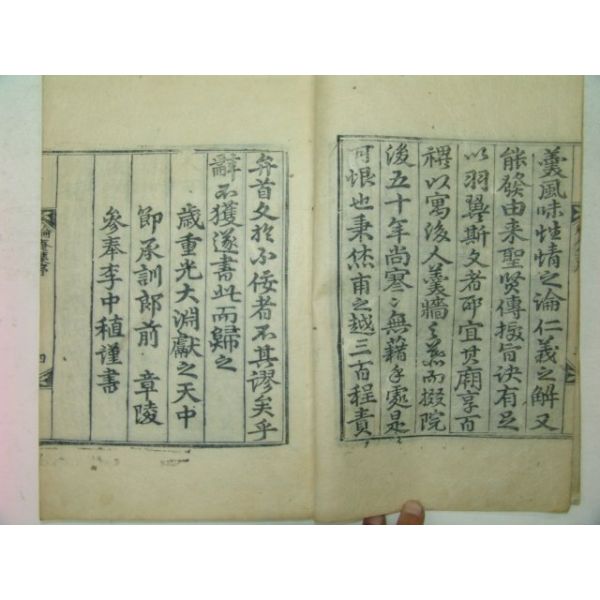 羹風味性情之論仁義之解又
能發由来聖賢傳授旨訣有足
以羽翼斯文者耶宜其廟享百
禩以寓後人羹牆之慕而掇院
後五十年尚寥〻無藉手處是
可恨也秉烋甫之越三百程責
弁首文於不佞者不其謬矣乎
辭不獲遂書此而歸之
歲重光大淵獻之天中
節承訓郎前 章陵
參奉李中稙謹書
四